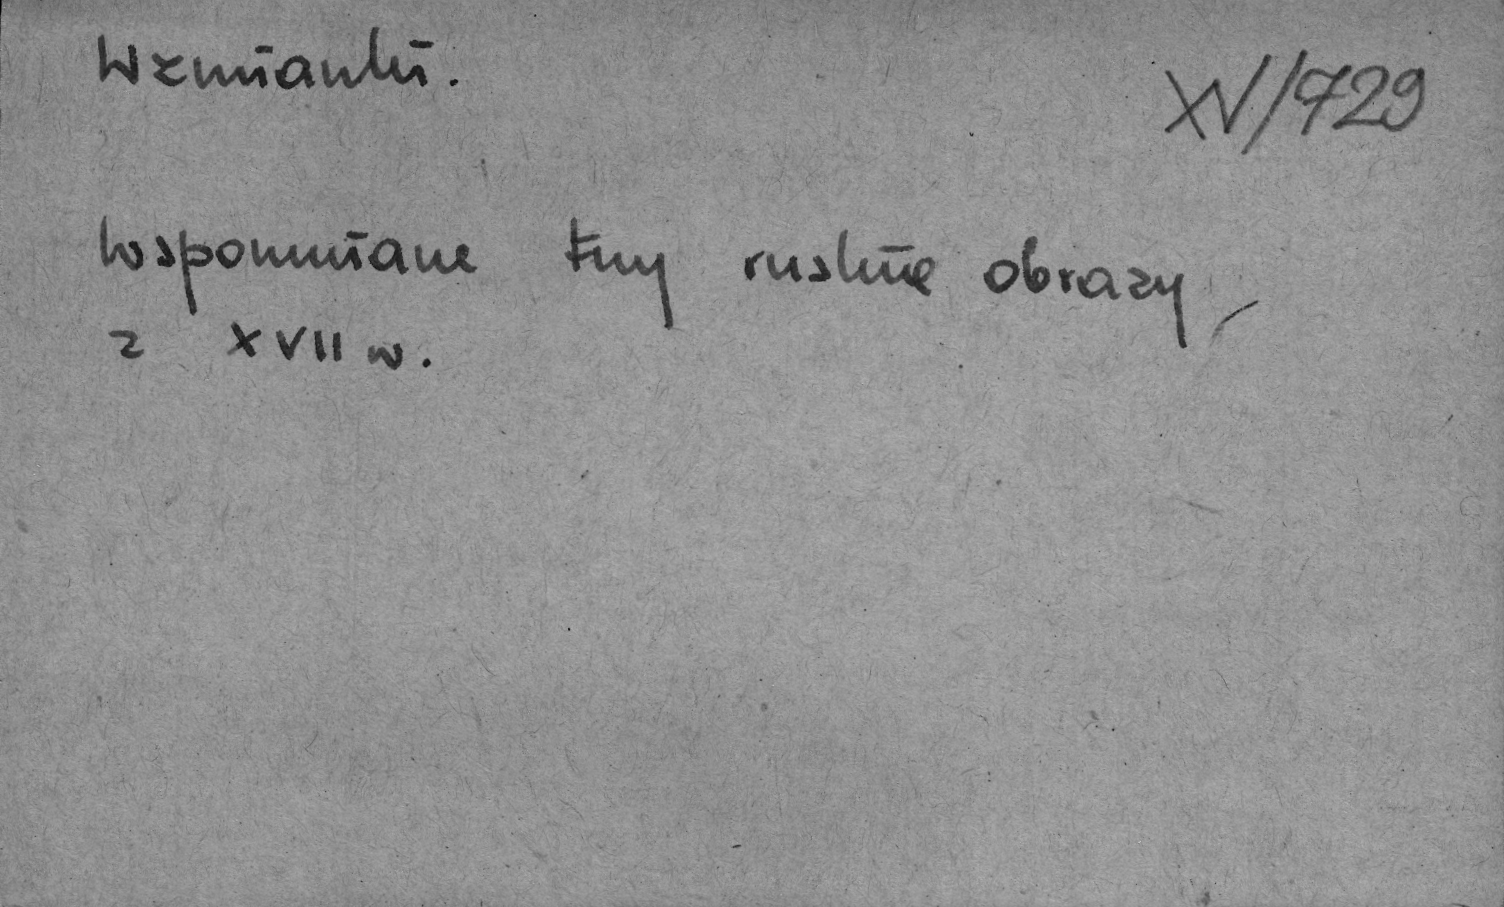 Wzmianki.
XV/729
Wspomniane trzy ruskie obrazy
z XVII w.